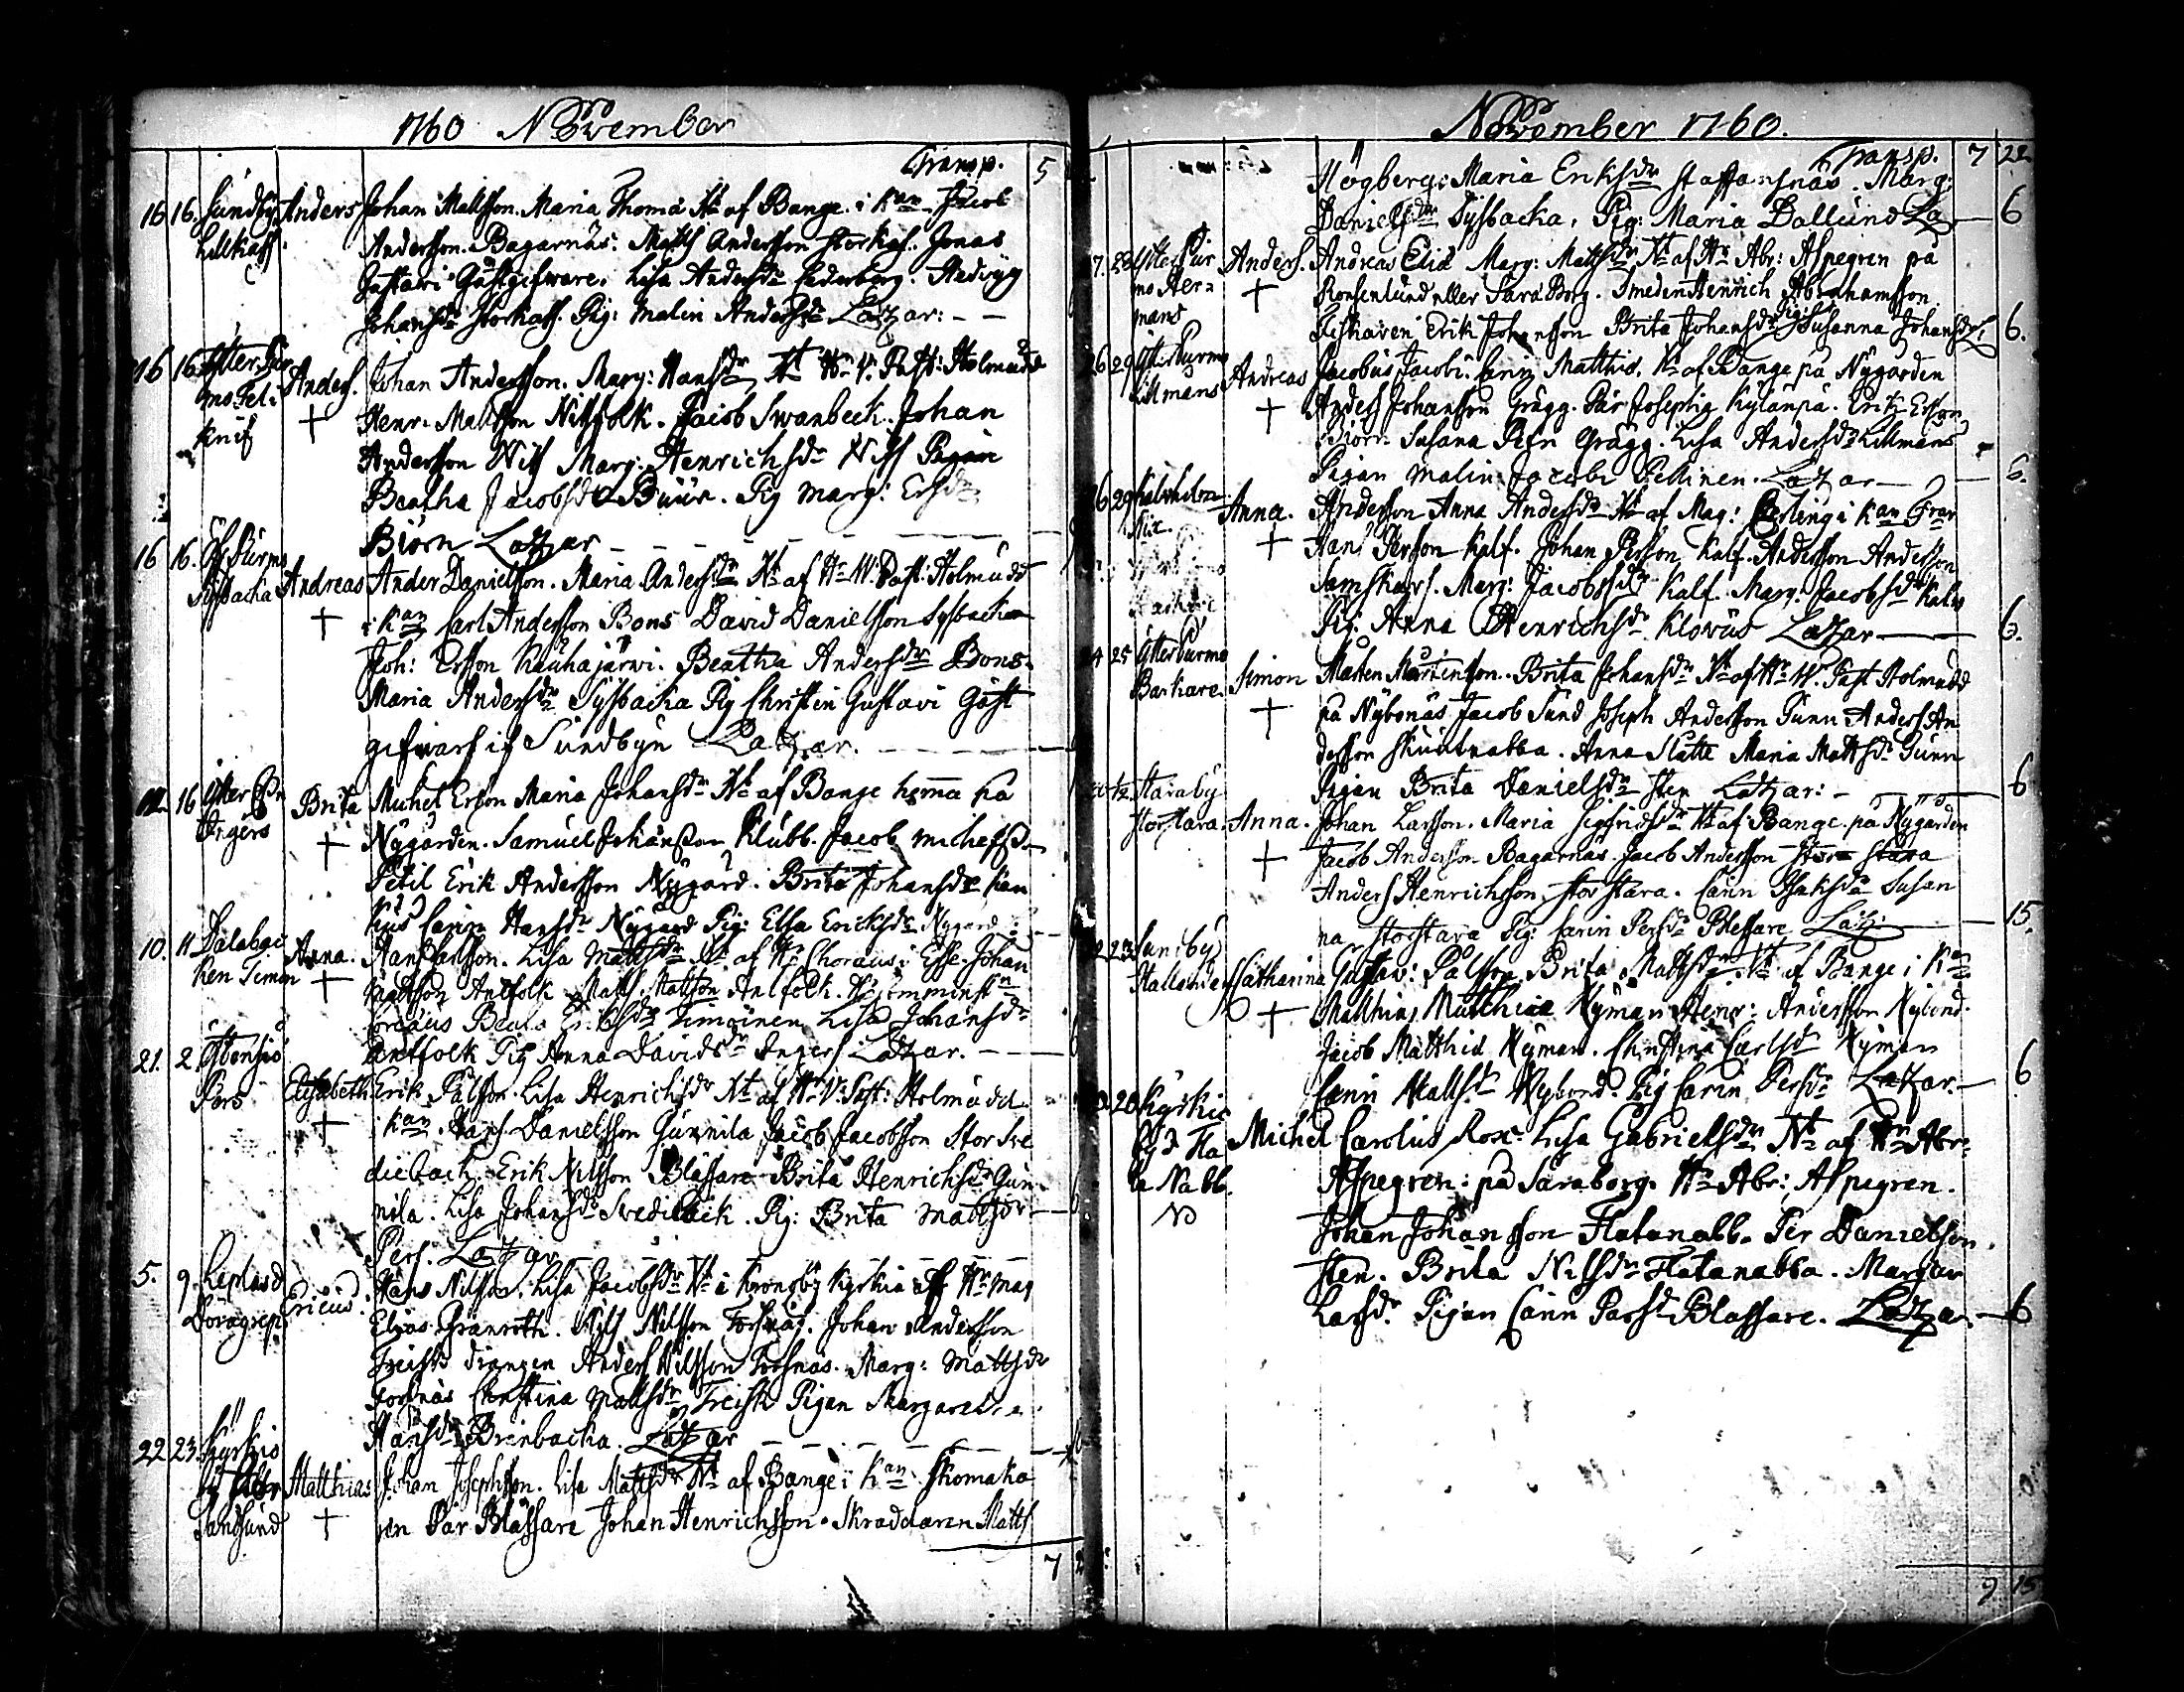 1760 November
Transp. 5
16 16. Sundby Anders Johan Mattsson. Maria Thomæ Nt af Bange i Kan Jacob
Lillkass. Andersson Bagarnäs. Matts Andersson Storkas. Jonas
Gustavi Gästgifware. Lisa Andersdr Cederberg. Hedvig
Johansdr Storkass. Pig: Malin Andersdr Latzar: – –
16 16. Ytter Pur Anders. Johan Andersson. Marg: Hansdr Nt Hr V. Past: Holmudd
mo
Knif † Henr. Mattsson Nissfolk. Jacob Swanbeck. Johan
Andersson Niss Marg: Henrichsdr Niss Pigan
Beatha Jacobsdr Buur. Pig Marg: Ersdr
Biörn Latzar
16 16. Öf. Purmo
Sysbacka Andreas Ander Danielsson. Maria Andersdr Nt af Hr V. Past: Holmudd
† i Kan Carl Andersson Bons David Danielsson Sysbacka
Joh: Ersson Kauhajärwi. Beatha Andersdr Bons.
Maria Andersdr Sysbacka Pig Christin Gustavi Gäst
gifwars if Sundbyn Latzar.
16 Ytter Es Brita Michel Erson Maria Johansdr Nt af Bange hemma på
† Nygården. Samuel Johansson Klubb. Jacob Michelss
Petil Erik Andersson Nygård. Brita Johansdr Kan
kus Carin Hansdr Nygård Pig: Elsa Ericksdr Nygård
10. 11 Dalabac Anna. Hans Carlsson. Lisa Mattsdr Nt af Hr Choræus i Esse Johan
ken Simon † Mattson Antfolk Matts Mattson Antfolk.
Choræus Beata Eriksdr Timoinen Lisa Johansdr
Antfolk Pig Anna Davidsdr Ingers Latzar.
21. 2 Östensiö
Pers Elisabeth Erik Pålson. Lisa Henrichsdr Nt af Hr V. Past: Holmudd
† i Kan. Hans Danielsson Gunnila Jacob Jacobsson Stor Sve
diebach. Erik Nilsson Blässare Brita Henrichsdr Gun
nila. Lisa Johansdr Svedieback. Pig: Brita Mattsdr
Pers. Latzar
5. 9. Leplaxd Ericus. Hans Nilsson. Lisa Jacobsdr Nt i Kronoby Kyrkia af Hr Mag
Elias Granroth. Nils Nilsson Forsnäs. Johan Andersson
Treisk drängen Anders Nilsson Forsnäs. Marg: Mattsdr
Forsnäs Christina Mattsdr Treisk Pigan Margareta
Hansdr Brinbacka. Latzar
22 23. Kyrkio
by Matthias Johan Josephsson. Lisa Mattsdr Nt af Bange i Kan. Skomaka
Sandsund † ren Pär Blässare Johan Henrichsson. Skraddaren Matts
7
November 1760.
Transp. 7 22
Högberg: Maria Eriksdr Staffansnäs. Marg:
Danielsdr Sysbacka. Pig: Maria Dallund La— 6
7. 28. Ytter Pur Anders. Andreas Eliæ Marg: Mattsdr Nt af Hr Abr: Aspegren på
mo Her= † Rosenlund eller Sara Borg. Smeden Henrich Abrahamsson
mans Fiskaren Erik Johansson Brita Johansdr Pigi Susanna Johansdr 6.
26 29 Ytterpurmo Andreas Jacobus Jacobi. Carin Matthiæ. Nt af Bange på Nygården
Lillmans † Anders Johansson Grägg. Pär Josephi Kylänpä. Erik Erson
Biörn. Susana Grägg. Lisa Andersdr Lillmans
Pigan Malin Jacobi Pellinen. Latzar — 6.
26 29 Kalfholm Anna. Andersson Anna Andersdr Nt af Mag: Carling i Kan
† Hans Persson Kalf. Johan Person Kalf. Andersson Andersson
Marg: Jacobsdr Kalf. Marg: Jacobsdr Kalf
Pig: Anna Henrichsdr Klovus Latzar — 6.
24 25 Ytterpurmo
Barkare. Simon Mårten Mårtensson. Brita Johansdr Nt af Hr V. Past Holmudd
† på Nybonäs Jacob Sund Joseph Andersson Gunn Anders An
dersson Skuutnabba. Anna Slätte Maria Mattsdr Gunn
Pigan Brita Danielsdr Sten Latzar: — 6
Staraby
Storstara. Anna. Johan Larsson. Maria Sigfridsdr Nt af Bange. på Nygården
† Jacob Andersson Bagarnäs. Jacob Andersson Stor Stara
Anders Henrichsson, Stor stara. Carin Isaksdr Susan
na Storstara Pig: Carin Persdr Blessare Latz: — 15.
22 23 Sundby
Catharina Gustav: Pålsson Brita Mattsdr Nt af Bange i Kan
† Matthias Matthiæ Nyman Henr: Andersson Nylund.
Jacob Matthiæ Nyman. Christina Carlsdr Nyman
Carin Mattsdr Nylund. Pig Carin Persdr Latzar. — 6
20 Kyrkio
by Fla Michel Carolius Rox. Lisa Gabrielsdr Nt af Hr Abr:
ta Nabb. Aspegren: på Saraborg. Hr Abr: Aspegren.
Johan Johansson Flatanabb. Per Danielson
Sten. Brita Nilsdr Flatanabba. Margar
Larsdr. Pigan Carin Parsdr Blassare. Latzar. — 6
9 15